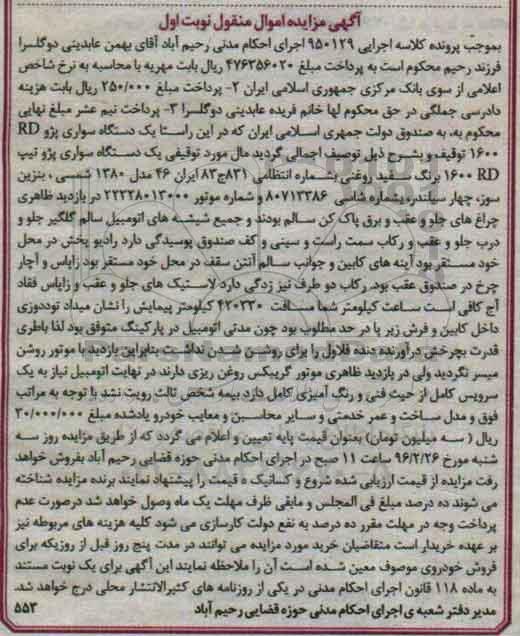 آگهی مزایده اموال منقول نوبت اول
بموجب پرونده کلاسه اجرایی ۹۵۰۱۲۹ اجرای احکام مدنی رحیم آباد آقای بهمن عابدینی دوگلسرا
فرزند رحیم محکوم است به پرداخت مبلغ ۴۷۶۳۵۶۰۲۰ ریال بابت مهریه با محاسبه به نرخ شاخص
اعلامی از سوی بانک مرکزی جمهوری اسلامی ایران ۲- پرداخت مبلغ ۲۵۰/۰۰۰ ریال بابت هزینه
دادرسی جملگی در حق محکوم لها خانم فریده عابدینی دوگلسرا ۳- پرداخت نیم عشر مبلغ نهایی
محکوم به، به صندوق دولت جمهری اسلامی ایران که در این راستا یک دستگاه سواری پژو RD
۱۶۰۰ توقیف و بشرح ذیل توصیف اجمالی گردید مال مورد توقیفی یک دستگاه سواری پژو تیپ
RD ۱۶۰۰ برنگ سفید روغنی بشماره انتظامی ۸۳۱ج۸۳ ایران ۴۶ مدل ۱۳۸۰ شمسی ، بنزین
سوز، چهار سیلندر، بشماره شاسی ۸۰۷۱۳۳۸۶ و شماره موتور ۲۲۳۲۸۰۱۳۰۰۰ در بازدید ظاهری
چراغ های جلو و عقب و برق پاک کن سالم بودند و جمیع شیشه های اتومبیل سالم گلگیر جلو و
درب جلو و عقب و رکاب سمت راست و سینی و کف صندوق پوسیدگی دارد رادیو پخش در محل
خود مستقر بود آینه های کابین و جوانب سالم آنتن سقف در محل خود مستقر بود زاپاس و آچار
چرخ در صندوق عقب بود. رکاب دو طرف نیز زدگی دارد لاستیک های جلو و عقب و زاپاس فقاد
آج کافی است ساعت کیلومتر شما مسافت ۴۲۰۳۳۰ کیلومتر پیمایش را نشان میداد تودوزی
داخل کابین و فرش زیر پا در حد مطلوب بود چون مدتی اتومبیل در پارکینگ متوقف بود لذا باطری
قدرت بچرخش درآورنده دنده فلاول را برای روشن شدن نداشت بنابراین بازدید با موتور روشن
میسر نگردید ولی در بازدید ظاهری موتور گریبکس روغن ریزی دارند در نهایت اتومبیل نیاز به یک
سرویس کامل از حیث فنی و رنگ آمیزی کامل دارد بیمه شخص ثالث رویت نشد با توجه به مراتب
فوق و مدل ساخت و عمر خدمتی و سایر محاسن و معایب خودرو یادشده مبلغ ۳۰/۰۰۰/۰۰۰
ریال ( سه میلیون تومان) بعنوان قیمت پایه تعیین و اعلام می گردد که از طریق مزایده روز سه
شنبه مورخ ۹۶/۲/۲۶ ساعت ۱۱ صبح در اجرای احکام مدنی حوزه قضایی رحیم آباد بفروش خواهد
رفت مزایده از قیمت ارزیابی شده شروع و کسانیک ه قیمت را پیشنهاد نمایند برنده مزایده شناخته
می شوند ده درصد مبلغ فی المجلس و مابقی ظرف مهلت یک ماه وصول خواهد شد درصورت عدم
پرداخت وجه در مهلت مقرر ده درصد به نفع دولت کارسازی می شود کلیه هزینه های مربوطه نیز
بر عهده خریدار است متقاضیان خرید مورد مزایده می توانند در مدت پنج روز قبل از روزیکه برای
فروش خودروی موصوف معین شده است آن را ملاحظه نمایند این آگهی برای یک نوبت مستند
به ماده ۱۱۸ قانون اجرای احکام مدنی در یکی از روزنامه های کثیرالانتشار محلی درج خواهد شد.
مدیر دفتر شعبه ی اجرای احکام مدنی حوزه قضایی رحیم آباد ۵۵۳